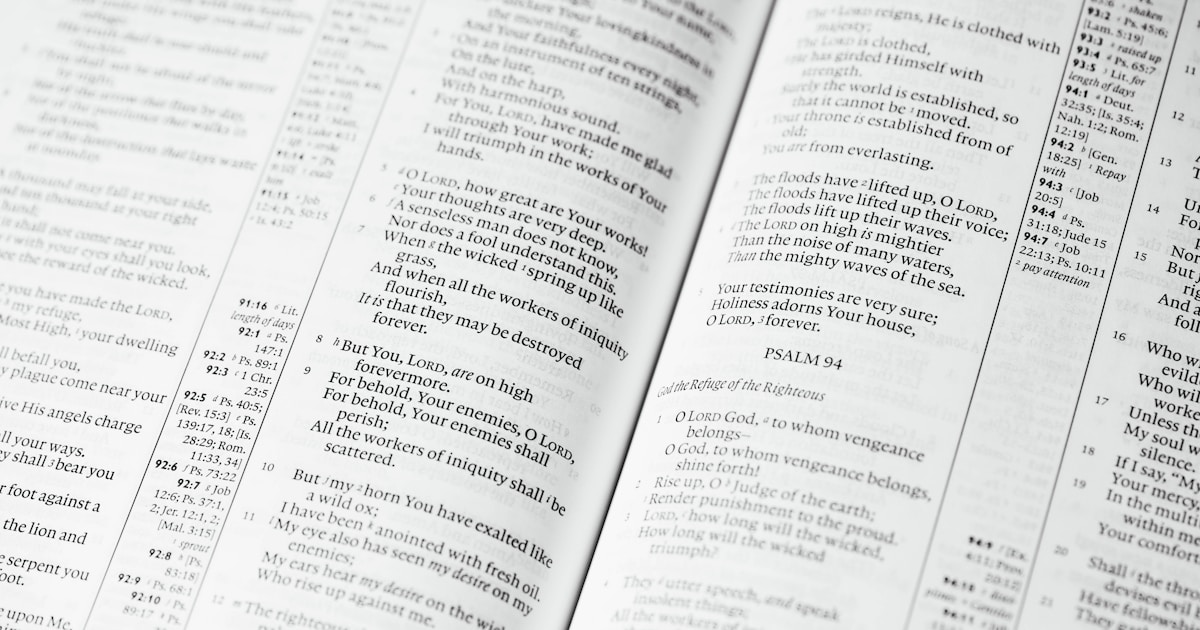 not be afraid of the terror
by night,
Nor of the arrow that flies by day,
Nor of the pestilence that walks in
darkness,
Nor of the destruction that lays waste
at noonday.
A thousand may fall at your side,
And ten thousand at your right
hand;
it shall not come near you.
with your eyes shall you look,
see the reward of the wicked.
you have made the LORD,
my refuge,
Most High, your dwelling
ll befall you,
y plague come near your
ive His angels charge
ll your ways.
y shall 3bear you
r foot against a
the lion and
e serpent you
oot.
e upon Me,
91:15 Job
12:4; Ps. 50:15
Is. 43:2
91:16 Lit.
length of days
92:1 a Ps.
147:1
92:2 b Ps. 89:1
92:3 c 1 Chr.
23:5
92:5 d Ps. 40:5;
[Rev. 15:3] e Ps.
139:17, 18; [Is.
28:29; Rom.
11:33, 34]
92:6 f Ps. 73:22
92:7 g Job
12:6; Ps. 37:1,
2; Jer. 12:1, 2;
[Mal. 3:15]
1 sprout
92:8 h [Ps.
83:18]
92:9 i Ps. 68:1
92:10 j Ps.
89:17
declare Your lovingkindness in
the morning,
And Your faithfulness every night,
3 On an instrument of ten strings,
On the lute,
And on the harp,
With harmonious sound.
4 For You, LORD, have made me glad
through Your work;
I will triumph in the works of Your
hands.
5 d O LORD, how great are Your works!
e Your thoughts are very deep.
6 f A senseless man does not know,
Nor does a fool understand this.
7 When g the wicked 1 spring up like
grass,
And when all the workers of iniquity
flourish,
It is that they may be destroyed
forever.
8 h But You, LORD, are on high
forevermore.
9 For behold, Your enemies, O LORD,
For behold, Your enemies shall
perish;
All the workers of iniquity shall i be
scattered.
10 But j my 2 horn You have exalted like
a wild ox;
I have been k anointed with fresh oil.
11 l My eye also has seen my desire on my
enemies;
My ears hear my desire on the wicked
Who rise up against me.
12 m The righteous
The LORD reigns, He is clothed with
majesty;
The LORD is clothed,
He has girded Himself with
strength.
Surely the world is established, so
that it cannot be 1 moved.
Your throne is established from of
old;
You are from everlasting.
3 The floods have 2 lifted up, O LORD,
The floods have lifted up their voice;
The floods lift up their waves.
4 The LORD on high is mightier
Than the noise of many waters,
Than the mighty waves of the sea.
5 Your testimonies are very sure;
Holiness adorns Your house,
O LORD, 3 forever.
PSALM 94
God the Refuge of the Righteous
1 O LORD God, a to whom vengeance
belongs—
O God, to whom vengeance belongs,
shine forth!
2 Rise up, O b Judge of the earth;
1 Render punishment to the proud.
3 LORD, c how long will the wicked,
How long will the wicked
triumph?
4 They d utter speech, and speak
insolent things;
All the workers of
shaken
93:2 c Ps. 45:6;
[Lam. 5:19]
93:3 2 raised up
93:4 d Ps. 65:7
93:5 3 Lit. for
length of days
94:1 a Deut.
32:35; [Is. 35:4;
Nah. 1:2; Rom.
12:19]
94:2 b [Gen.
18:25] 1 Repay
with
94:3 c [Job
20:5]
94:4 d Ps.
31:18; Jude 15
94:7 e Job
22:13; Ps. 10:11
2 pay attention
94:9
11
12
13
14
15
No
But
rig
And a
foll
16 Who w
evild
Who wil
worke
17 Unless th
My soul w
silence.
18 If I say, "My
Your mercy,
19 In the multi
within me
Your comfor
20 Shall the thro
devises evil
Have fellowsh
21 They gath